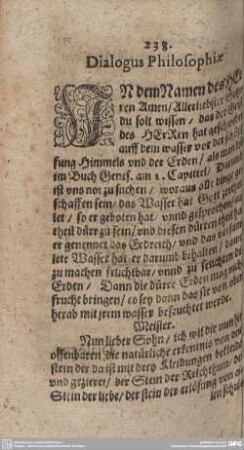 238.
Dialogus Philosophiæ
IN dem Namen des HER
ren Amen / Allerliebster Sohn
du solt wissen / das der Geist
des HErRen hat geschwebt
auff dem wasser vor der schöpf
fung Himmels vnd der Erden / als man
im Buch Genes. am 1. Capittel / Darumb
ist vns not zu suchen / woraus alle dinge ge
schaffen sein / das Wasser hat Gott
let / so er geboten hat / vnnd gesprochen /
theil dürr zu sein / vnd diesen dürren theil hat
er genennet das Erdreich / vnd das versam
lete Wasser hat er darumb behalten / dam
zu machen fruchtbar / vnnd zu feuchten die
Erden / Dann die dürre Erden mag nicht
frucht bringen / es sey dann das sie von oben
herab mit jrem wasser befeuchtet werde.
Meister.
Nun lieber Sohn / ich wil dir nun
offenbaren die natürliche erkentnis von dem
stein der da ist mit drey Kleidungen bekleidet
vnd gezieret / der Stein der Reichthumb
Stein der liebe / der stein der erlösung von al
len